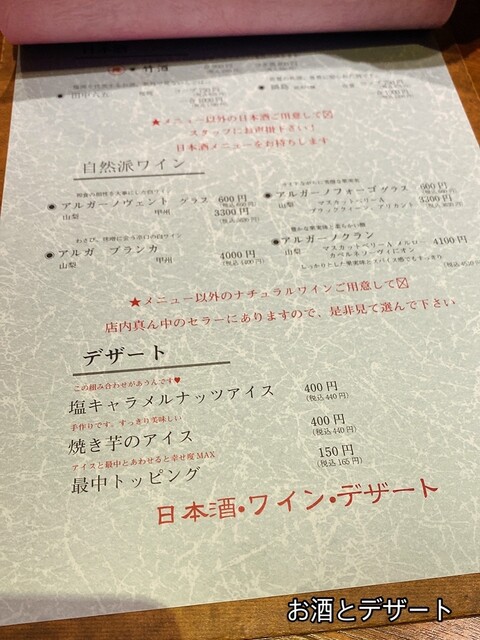 竹酒
★メニュー以外の日本酒ご用意して〼
スタッフにお声掛下さい！
日本酒メニューをお持ちします
自然派ワイン
アルガーノヴェント グラス 600円
山梨 甲州 3300円
アルガーノフォーゴ グラス 600円
山梨 マスカットベリーA 3300円
アルガ ブランカ 4000円
山梨 甲州
豊かな果実味と柔らかい酸
アルガーノクラン 4100円
山梨 マスカットベリーA メルロ
カベルネソーヴィニオン
しっかりとした果実味とスパイス感でもすっきり
★メニュー以外のナチュラルワインご用意して〼
店内真ん中のセラーにありますので、是非見て選んで下さい
デザート
この組み合わせがあうんです♥
塩キャラメルナッツアイス 400円
(税込440円)
手作りです。すっきり美味しい
焼き芋のアイス 400円
(税込440円)
アイスと最中とあわせると幸せ度MAX
最中トッピング 150円
(税込165円)
日本酒・ワイン・デザート
お酒とデザート